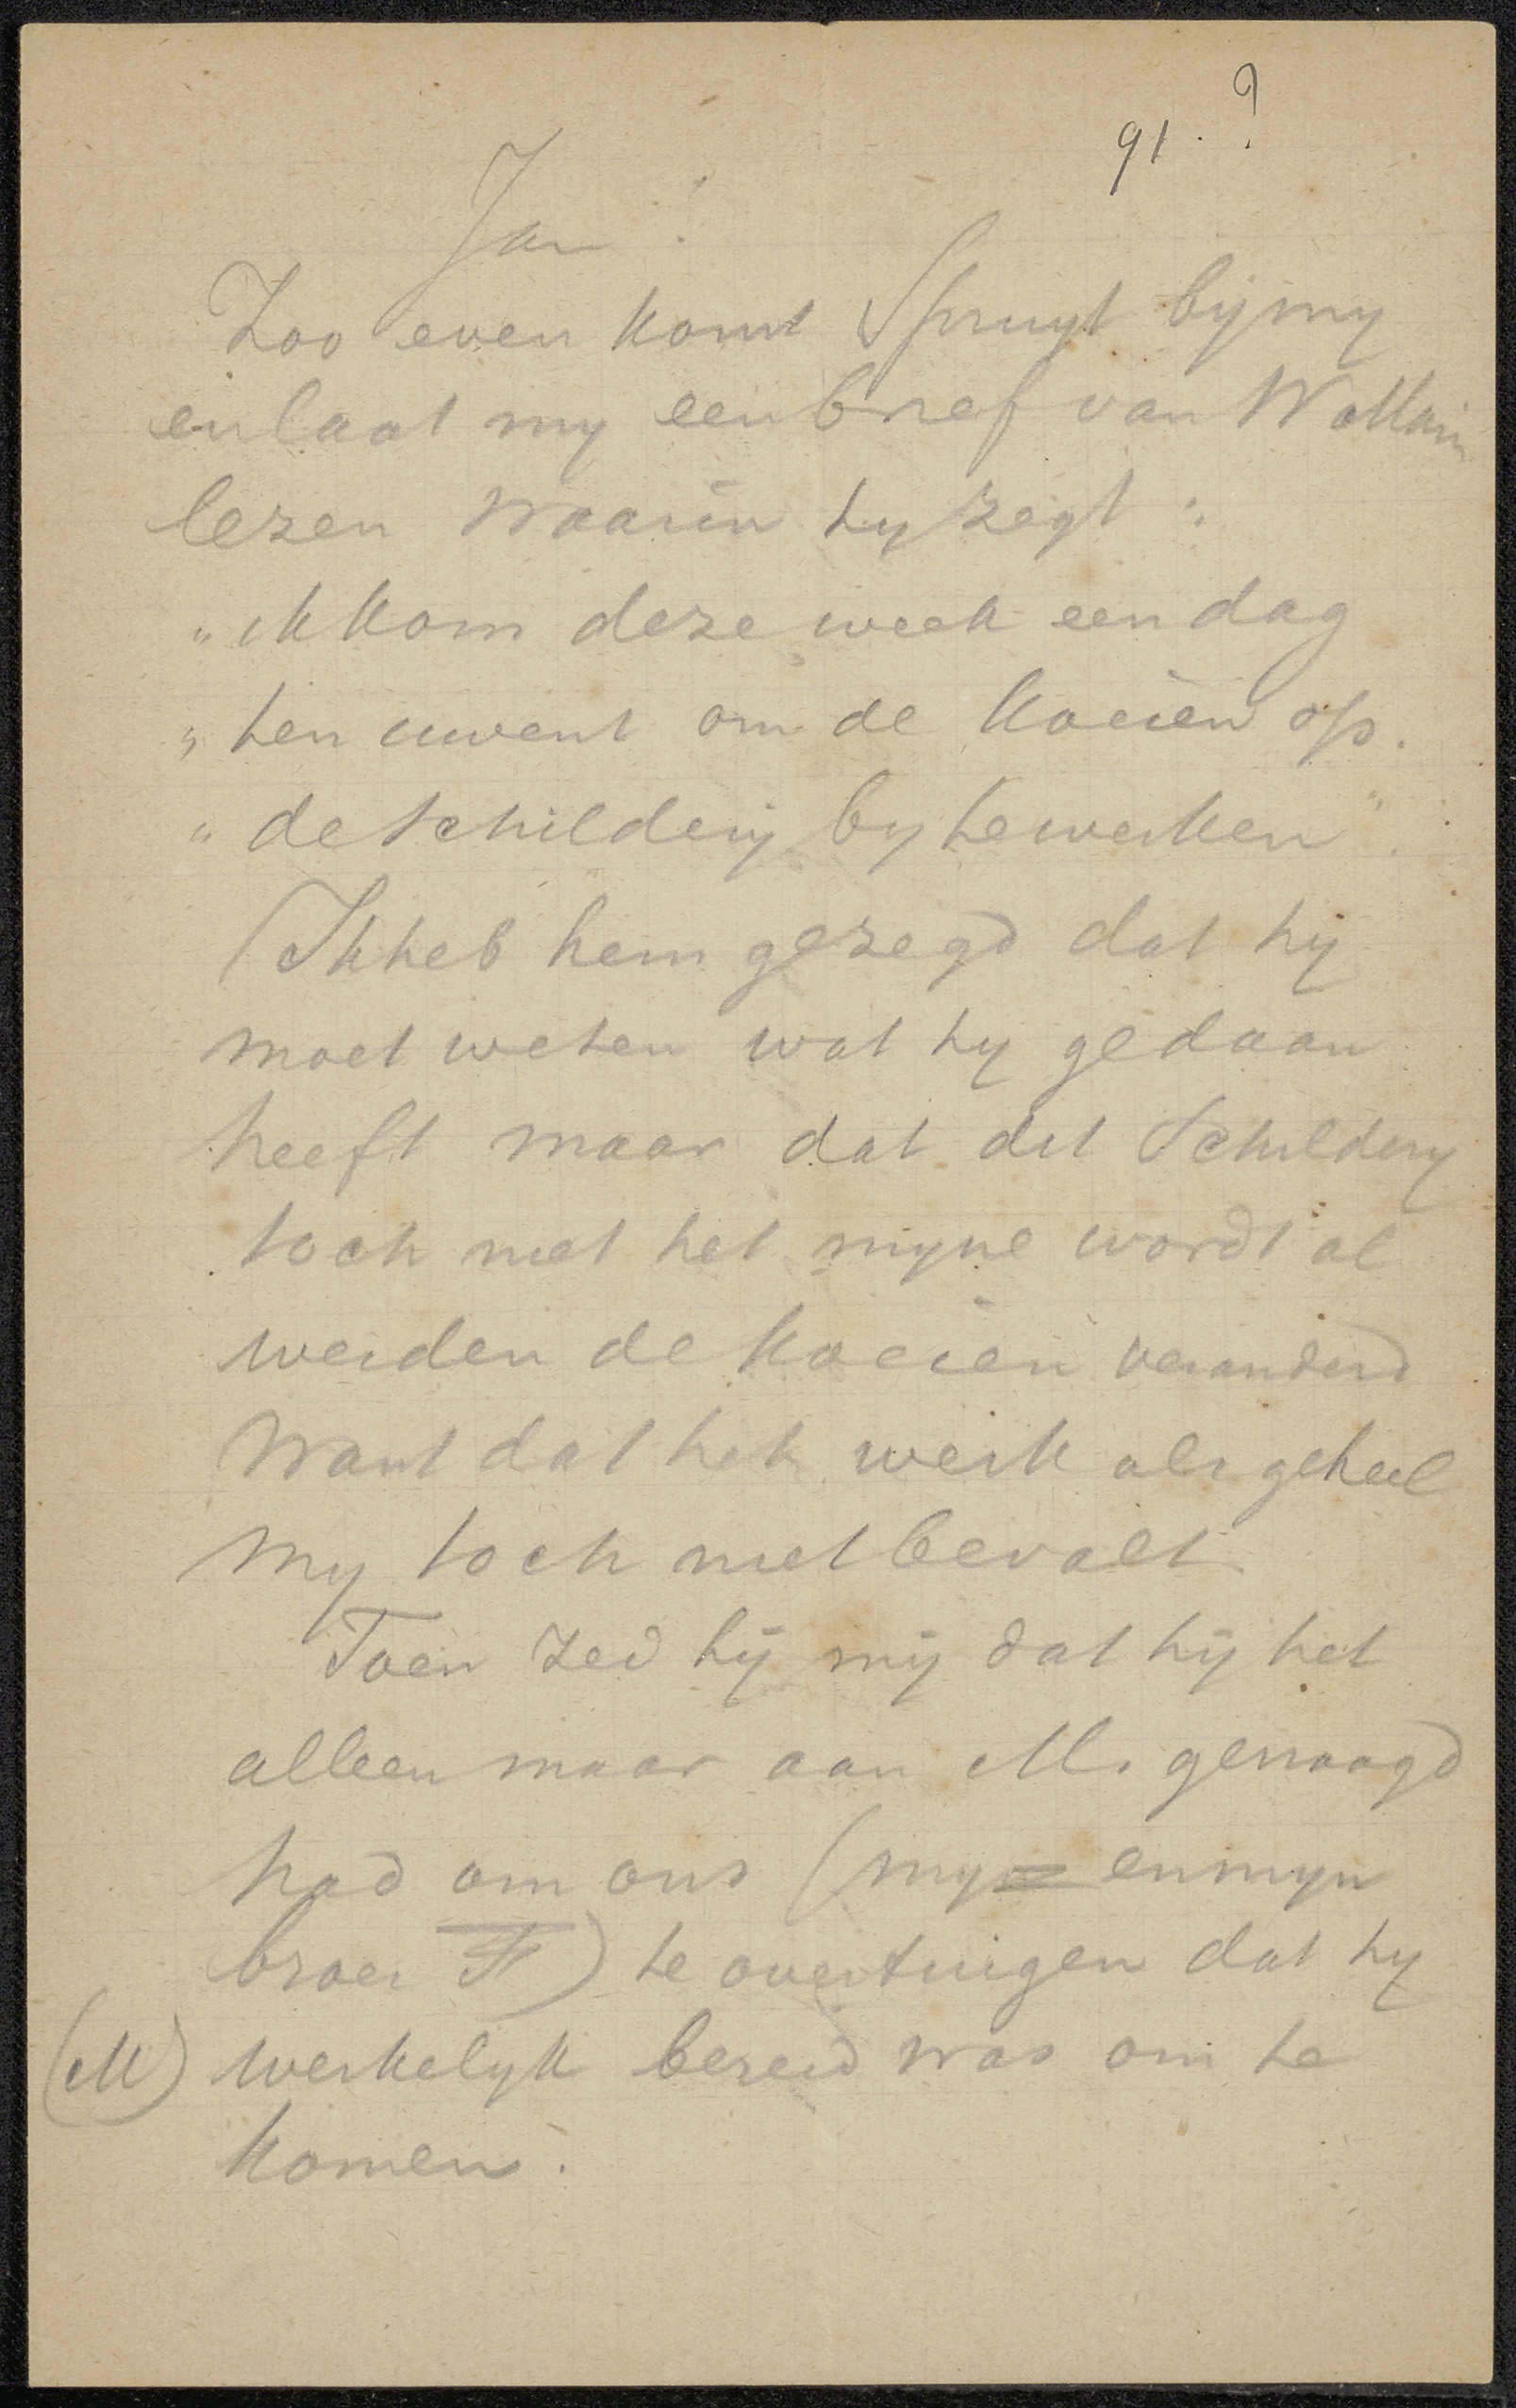 91.?
Jan!
Zoo even komt Spruyt bij my
en laat my een brief van W. Maris
lezen waarin hy zegt:
„ik kom deze week een dag
„ten uwent om de koeien op
„de schilderij by te werken".
Ik heb hem gezegd dat hij
moet weten wat hy gedaan
heeft maar dat dit schildery
toch niet het myne wordt al
werden de koeien veranderd
want dat het werk als geheel
my toch niet bevalt
Toen zeid hij mij dat hij het
alleen maar aan M. gevraagd
had om ons (my en myn
broer F) te overtuigen dat hy
(M) werkelyk bereid was om te
komen.